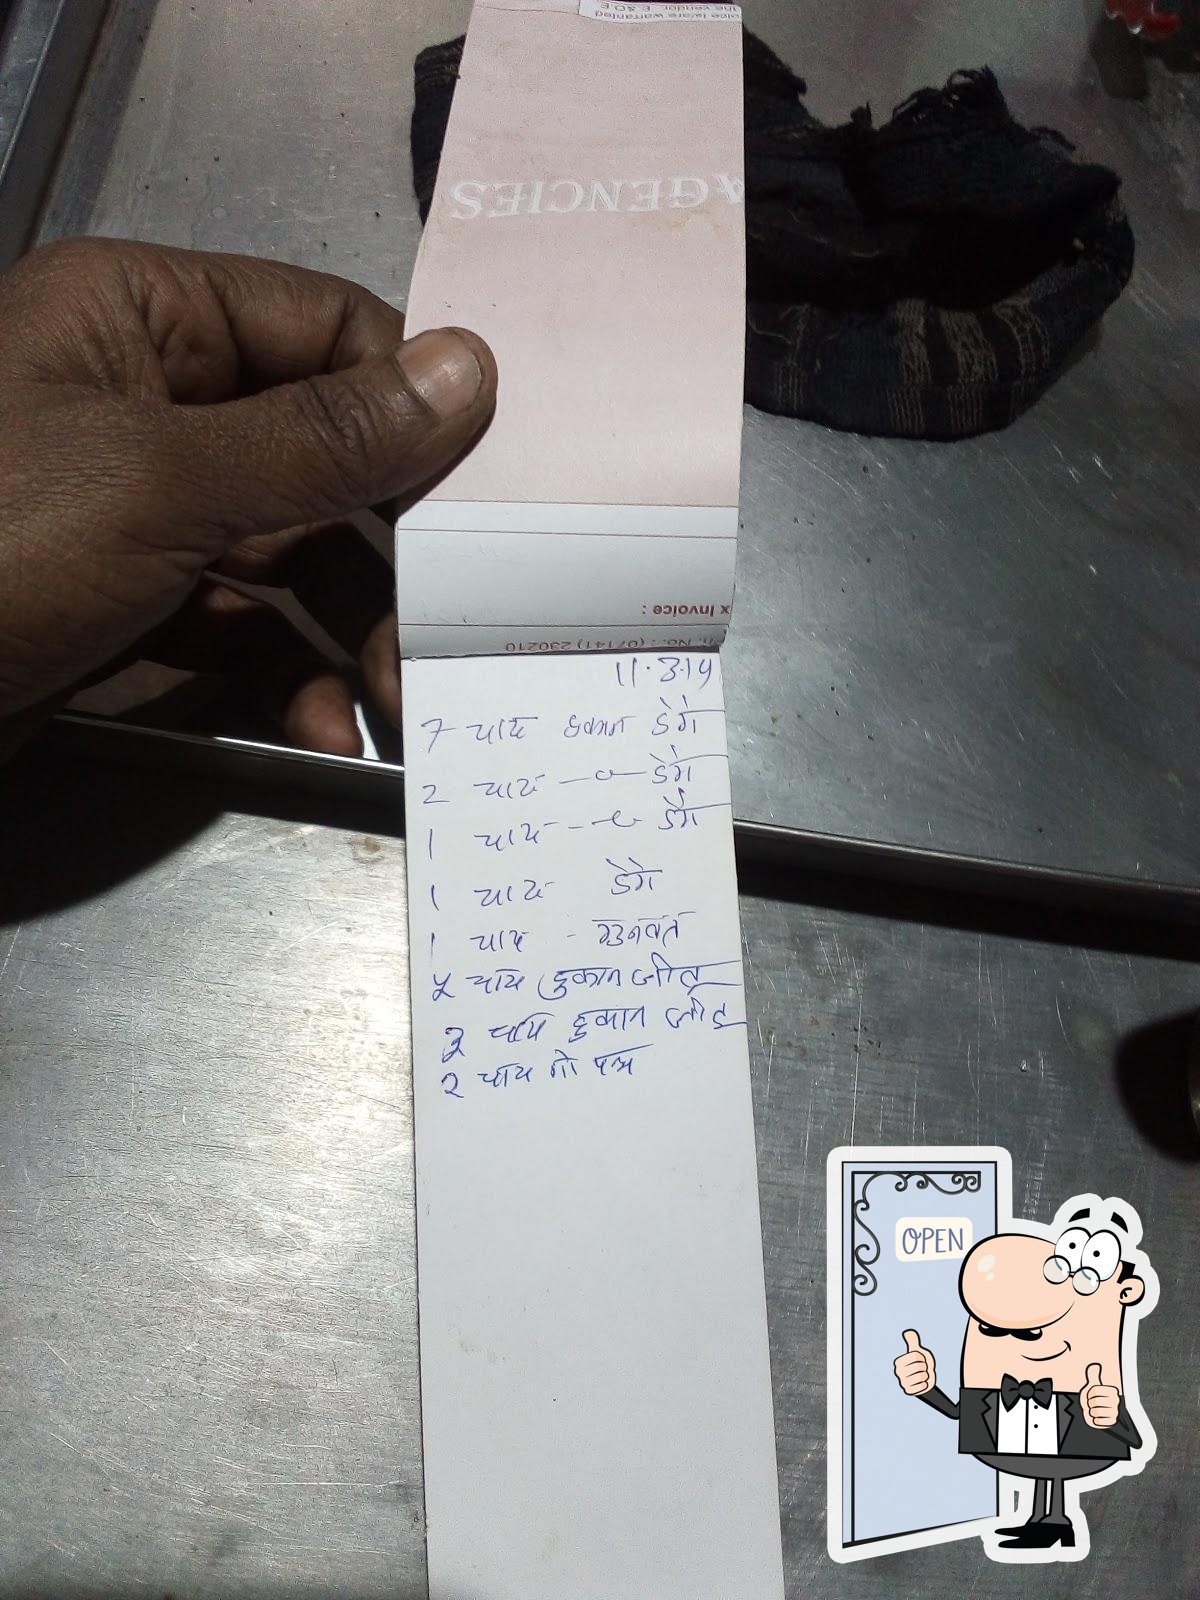 oice is/are warranted
the vendor. E.&O.E
AGENCIES
x Invoice :
No. : (07141) 230210
11.3.19
7 चाय दुकान डेंगे
2 चाय —〃— डेंगे
1 चाय —〃— डेंगे
1 चाय डेंगे
1 चाय - गुनवंत
४ चाय दुकान जीतु
३ चाय दुकान जीतु
२ चाय
OPEN